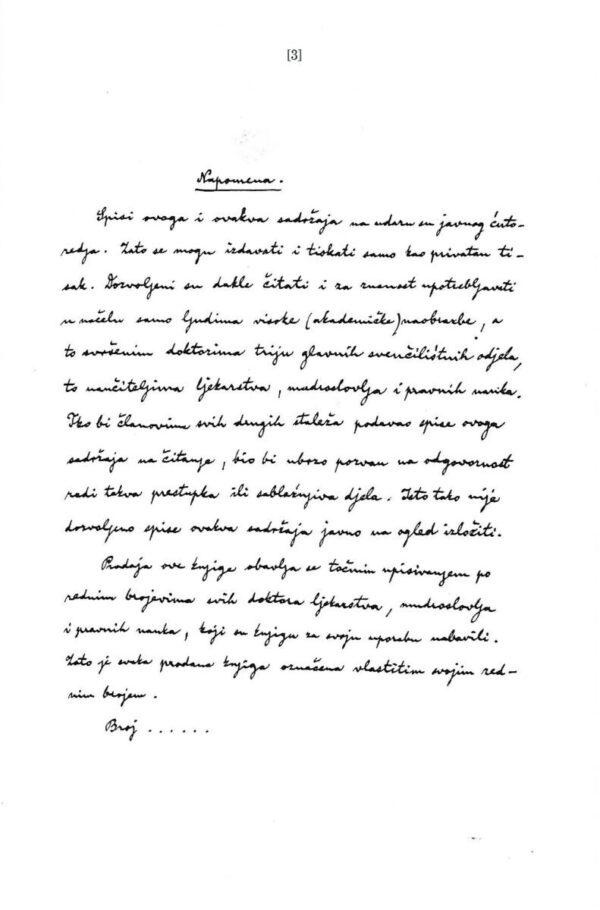 [3]
Napomena.
Spisi ovoga i ovakva sadržaja na udaru su javnog ćuto-
redja. Zato se mogu izdavati i tiskati samo kao privatan ti-
sak. Dozvoljeni su dakle čitati i za znanost upotrebljavati
u načelu samo ljudima visoke (akademičke) naobrazbe, a
to svršenim doktorima triju glavnih sveučilištnih odjela,
to naučiteljima ljekarstva, mudroslovlja i pravnih nauka.
Tko bi članovima svih drugih staleža podavao spise ovoga
sadržaja na čitanje, bio bi ubrzo pozvan na odgovornost
radi takva prestupka ili sablažnjiva djela. Isto tako nije
dozvoljeno spise ovakva sadržaja javno na ogled izložiti.
Prodaja ove knjige obavlja se točnim upisivanjem po
rednim brojevima svih doktora ljekarstva, mudroslovlja
i pravnih nauka, koji su knjigu za svoju uporabu nabavili.
Zato je svaka prodana knjiga označena vlastitim svojim red-
nim brojem.
Broj ......